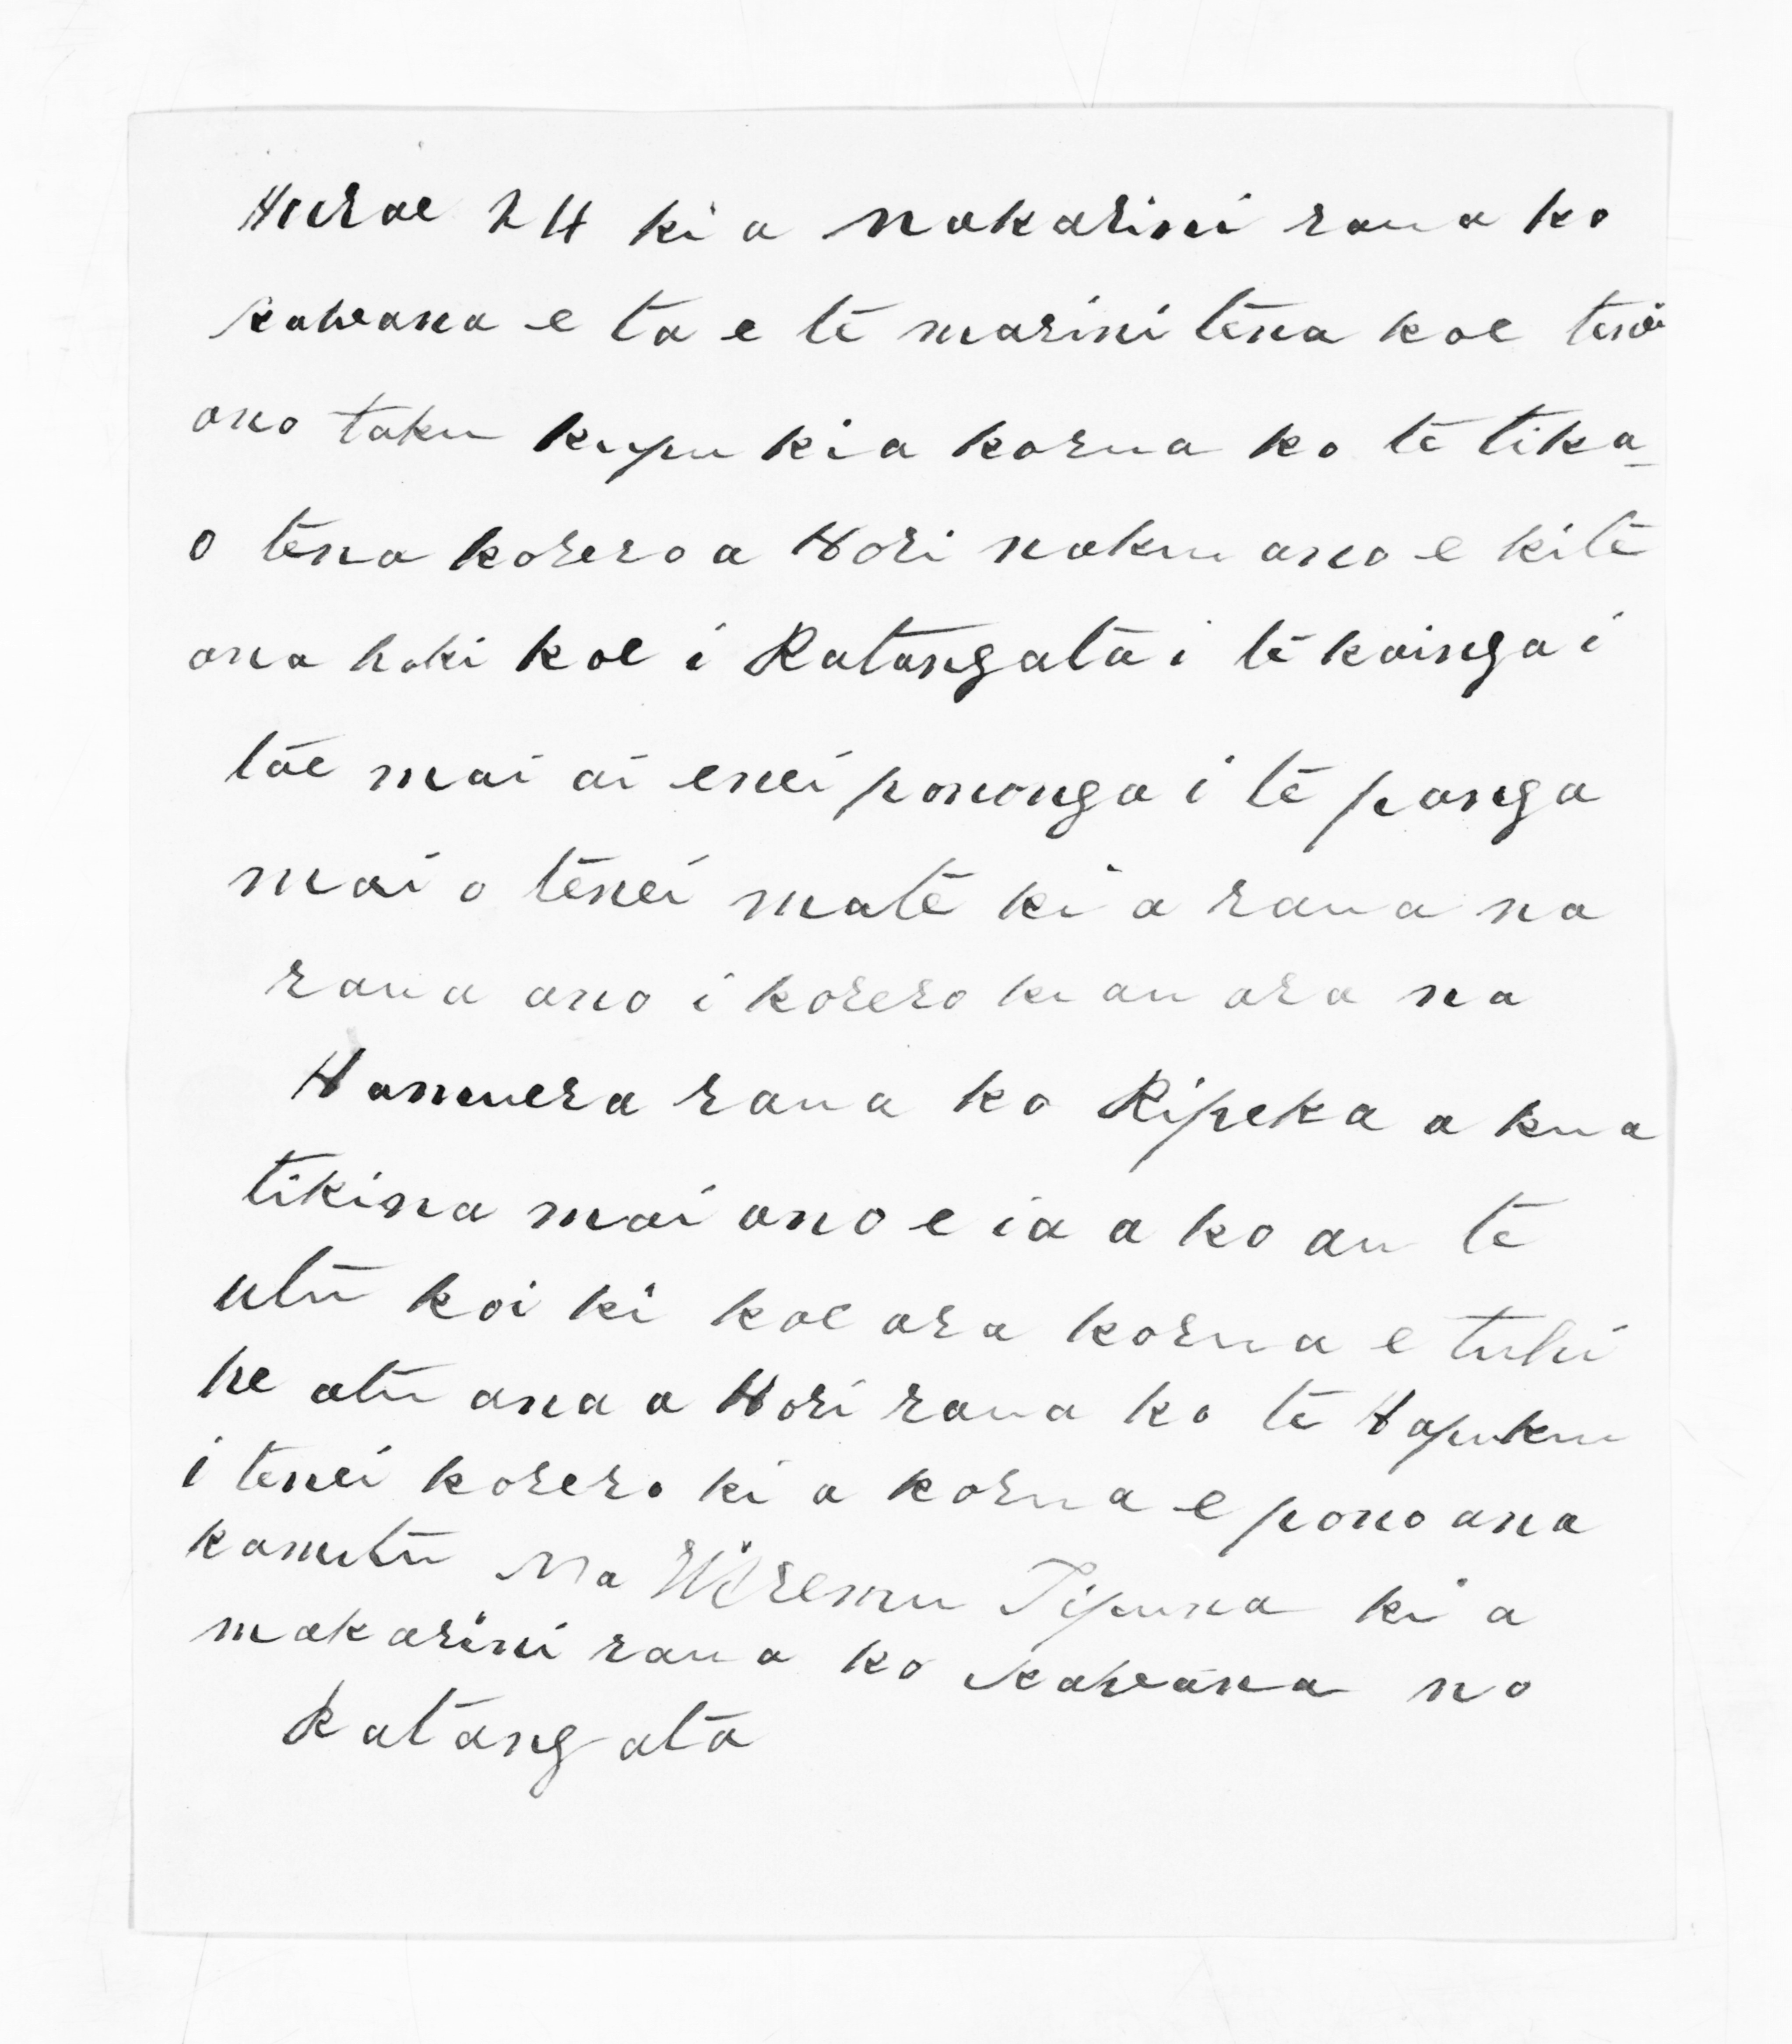 Hurae 24 ki a nakarini raua ko
kawana e ta e te marini tena koe tenei
ano taku kupu kia korua ko te tika
o tena korero a Hori naku ano e kite
ana hoki koe i Ratangata i te kainga i
tae mai ai enei pononga i te panga
mai o tenei mate ki a raua na
raua ano i korero ki au ara na
Hanuera raua ko Ripeka a kua
tikina mai ano e ia a ko au te
utu koi ki koe ara korua e tuhi
he atu ana a Hori raua ko te Hapuku
i tenei korero ki a korua e pono ana
kamutu Na Wiremu Tipuna ki a
makarini raua ko kawana no
Ratangata